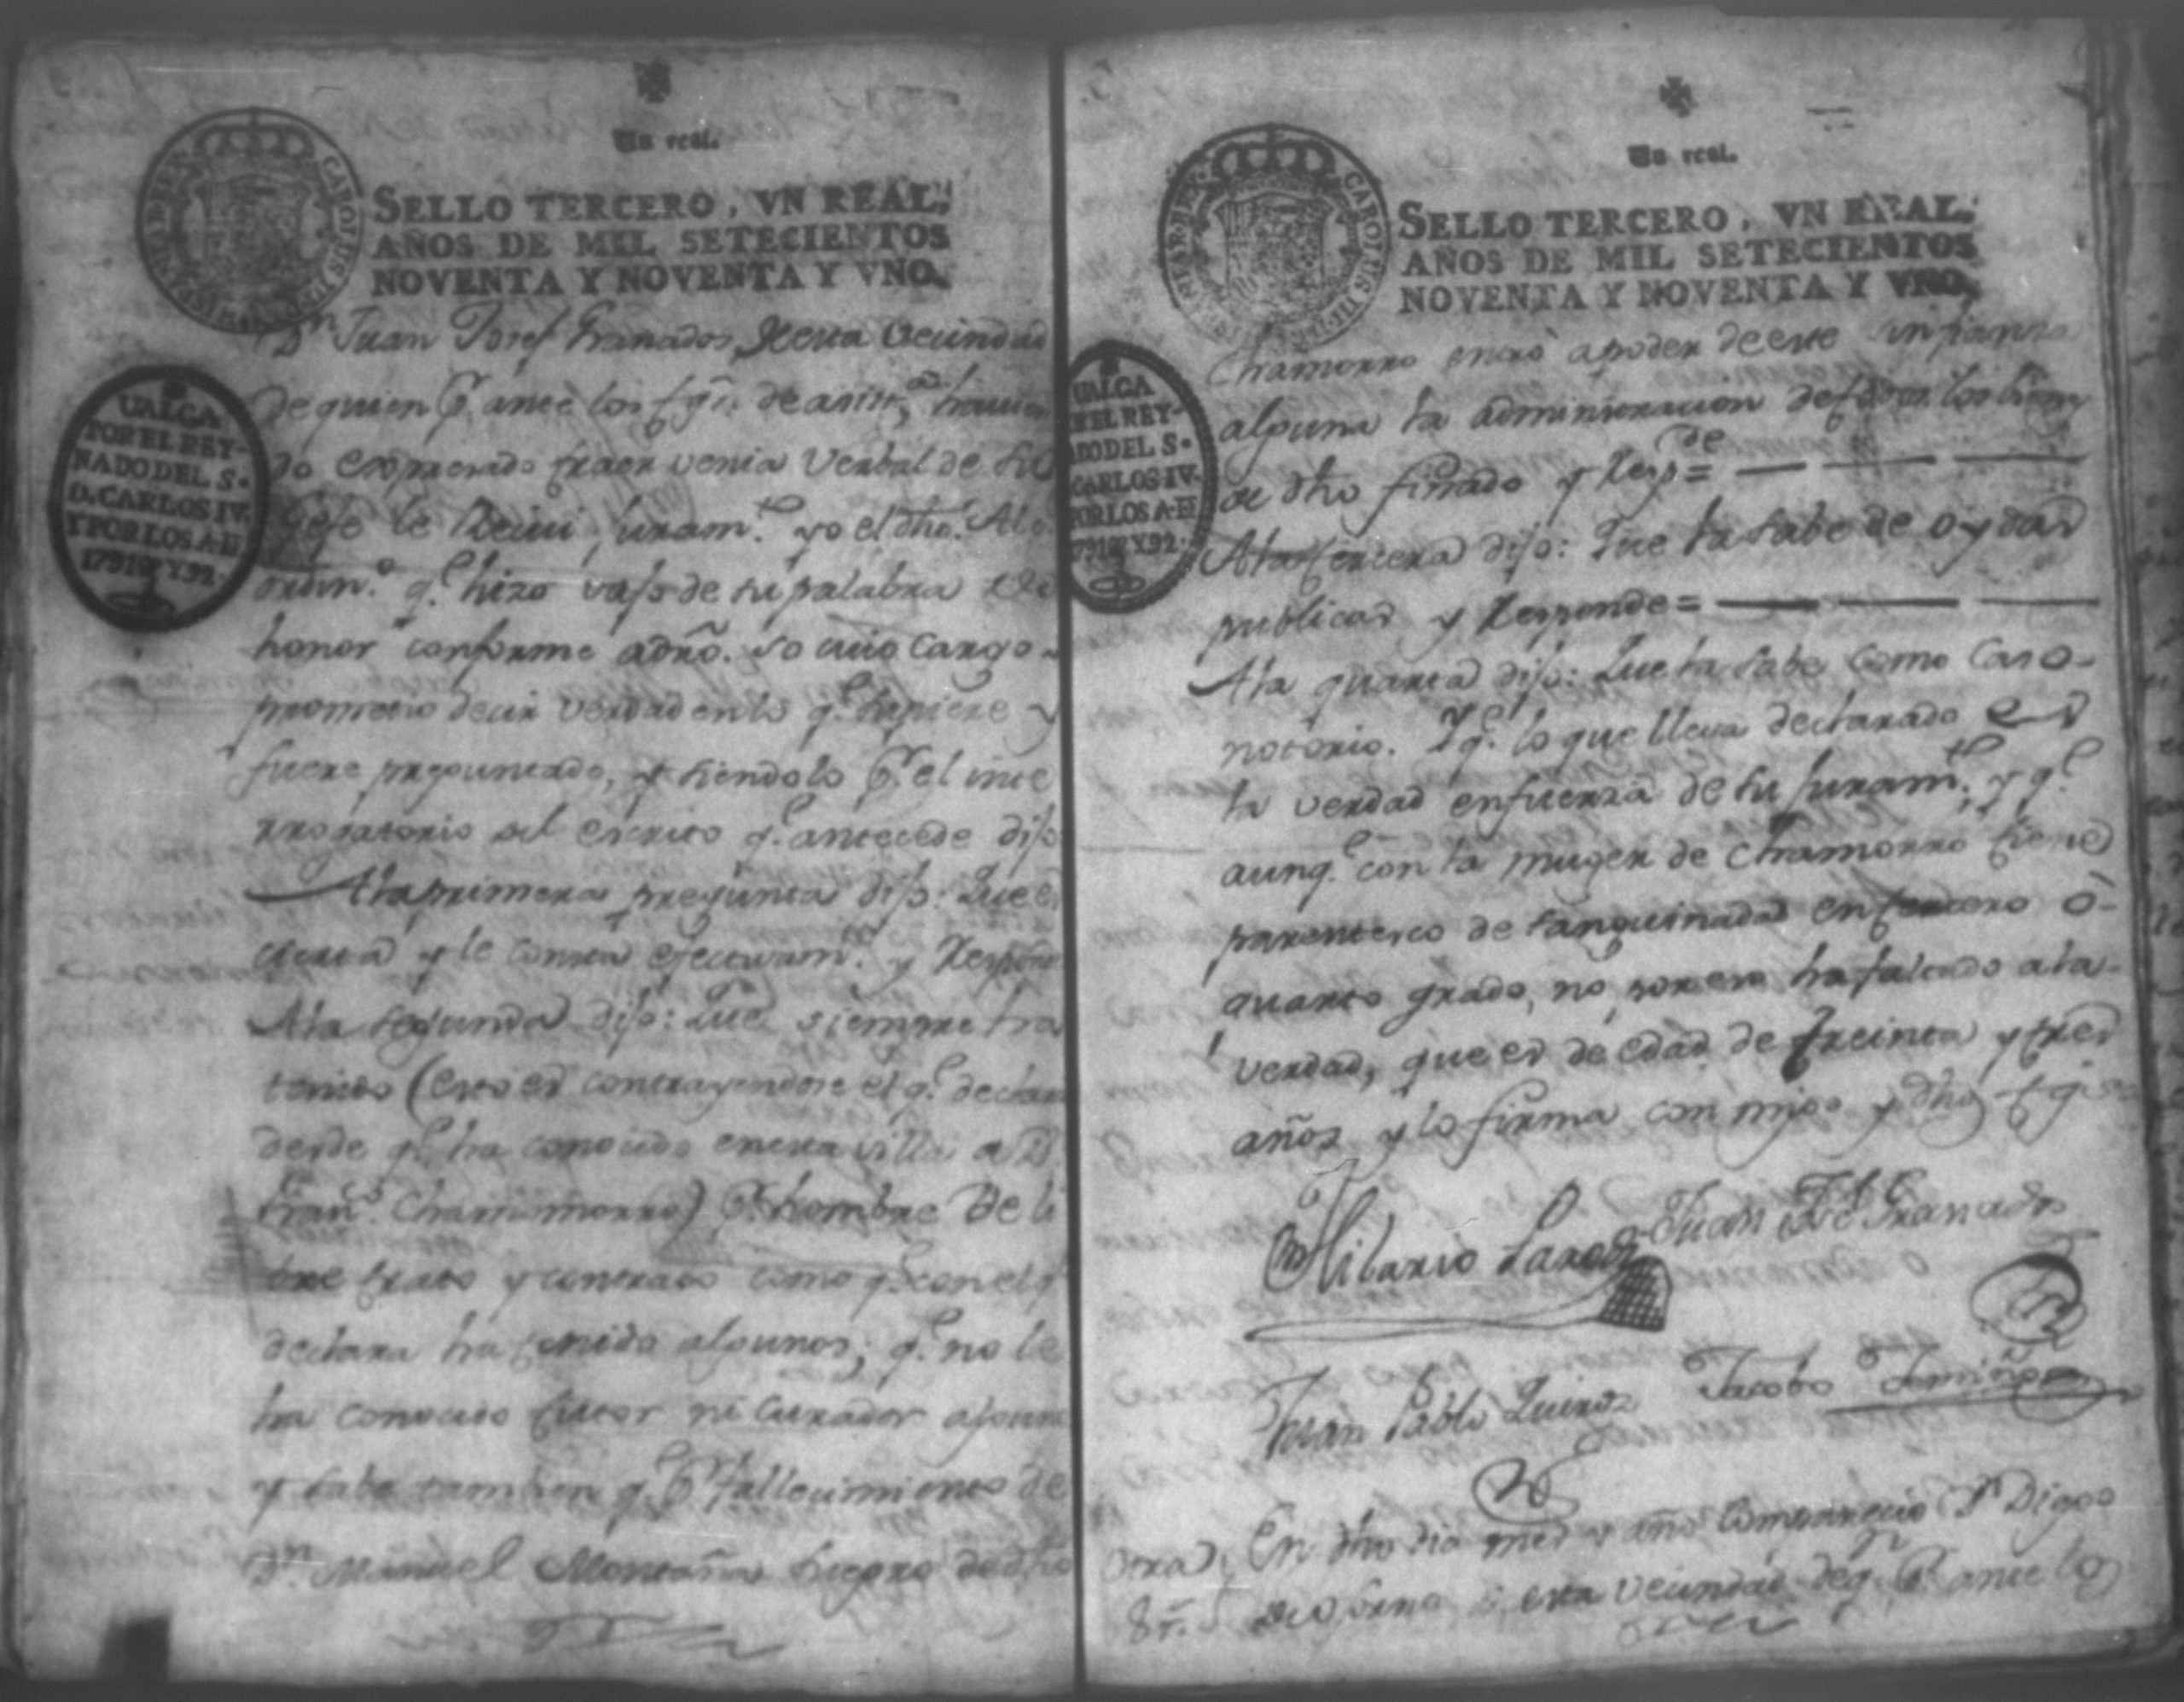 Un real.
SELLO TERCERO, VN REAL,
AÑOS DE MIL SETECIENTOS
NOVENTA Y NOVENTA Y VNO.
CAROLUS
UALGA
POR EL REY-
NADO DEL S.
D. CARLOS IV.
Y POR LOS A. D
1791 Y 92.
Dn. Juan Josef Granados, de esta vecindad
de quien pr. ante los tgos. de asista. havien
do expresado traer venia verbal de su
Gefe le recivi juramto. yo el dho. Alce
ordino. qe. hizo vajo de su palabra de
honor conforme a dro. so cuio cargo
prometio decir verdad en lo qe. supiere y
fuere preguntado, y siendolo pr. el inte
rrogatorio del escrito qe. antecede dijo
A la primera pregunta dijo: Que es
cierta y le consta efectivamte. y responde
A la segunda dijo: Que siempre ha
tenido (esto es contrayendose el qe. declara
desde qe. ha conocido en esta villa a Dn.
Franco. Chamorro) pr. hombre de li
bre trato y contrato como qe. con el qe.
declara ha tenido algunos; qe. no le
ha conocido tutor ni curador alguno
y sabe tambien qe. pr. fallecimiento de
Dn. Manuel Montaño suegro de dho
Un real.
SELLO TERCERO, VN REAL,
AÑOS DE MIL SETECIENTOS
NOVENTA Y NOVENTA Y VNO.
CAROLUS
UALGA
POR EL REY-
NADO DEL S.
CARLOS IV.
POR LOS A. D
1791 Y 92.
Chamorro entró a poder de este sin fianza
alguna la administracion de todos los bienes
de dho finado y respde =
A la tercera dijo: Que la sabe de oydas
publicas y responde =
A la quarta dijo: Que la sabe como caso
notorio. Y qe. lo que lleva declarado es
la verdad en fuerza de su juramto. y qe.
aunqe. con la muger de Chamorro tiene
parentesco de sanguinidad en tercero ó
quarto grado, no por eso ha faltado a la
verdad, que es de edad de treinta y tres
años y lo firma con migo y dhos tgos
Hilario Juan Jph Granados
Juan Pablo Quiros Jacobo
Otra En dho dia mes y año comparecio Dn. Diego
8a. de esta vecindad de qn. pr. ante los